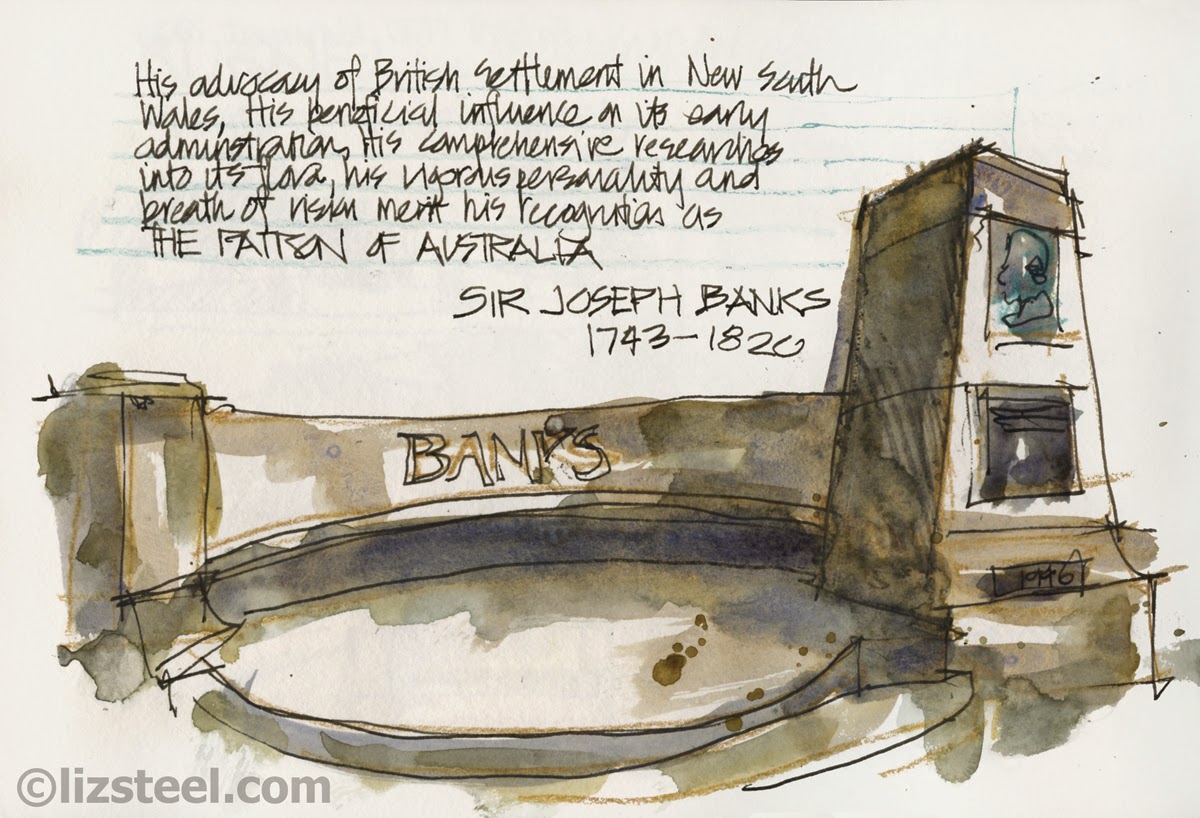 His advocacy of British Settlement in New South
Wales, His beneficial influence on its early
adminstration, His comprehensive researches
into its flora, his vigorous personality and
breath of vision merit his recognition as
THE PATRON OF AUSTRALIA
SIR JOSEPH BANKS
1743-1820
BANKS
1946
©lizsteel.com